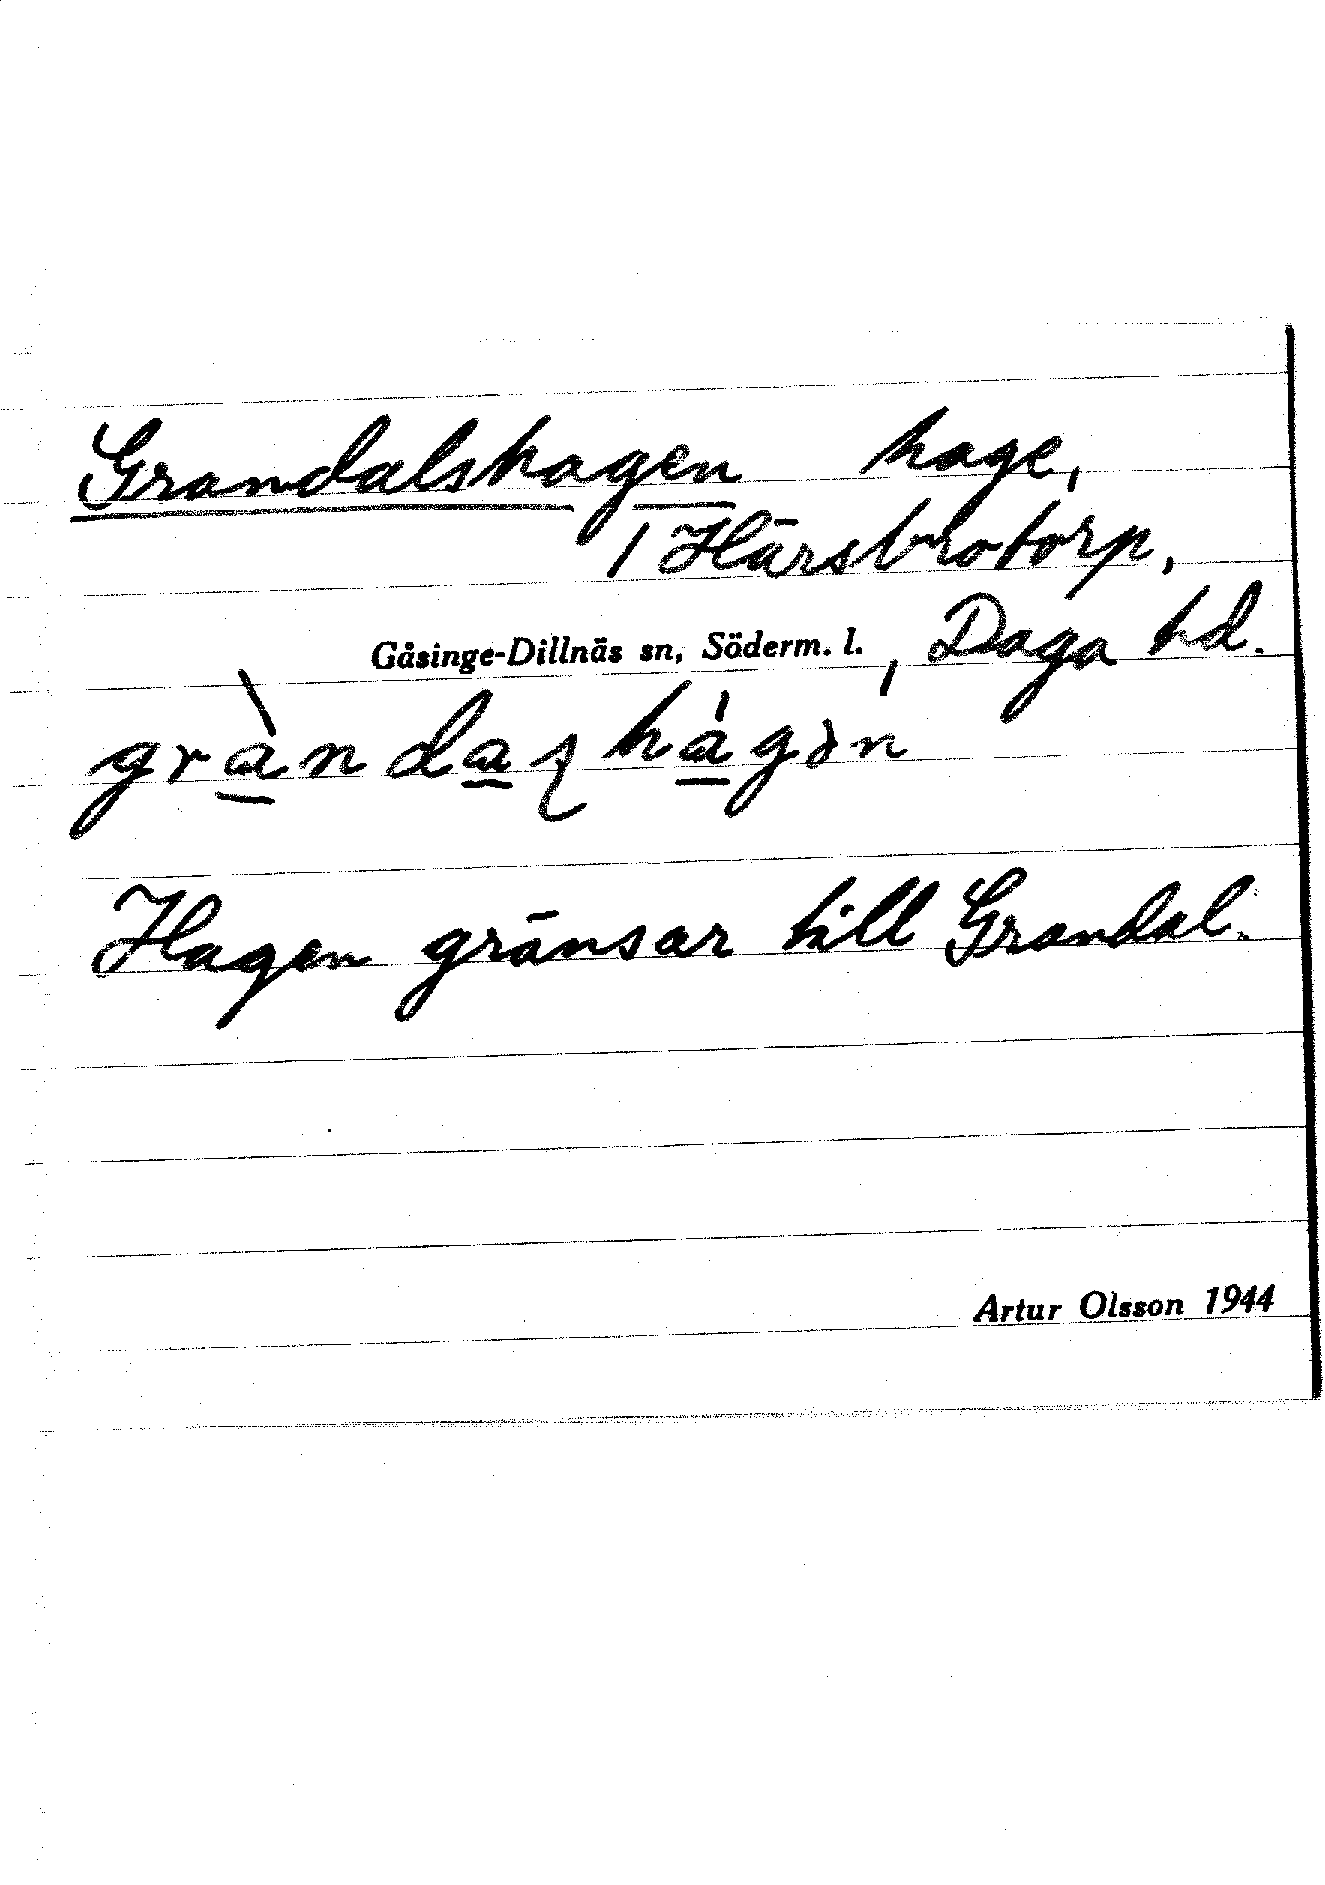 Grandalshagen hage,
1 Härsbrotorp,
Gåsinge-Dillnäs sn, Söderm. l., Daga hd.
Hagen gränsar till Grandal.
Artur Olsson 1944